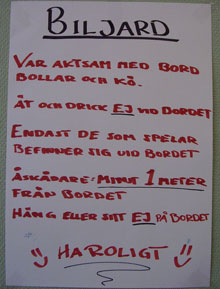 BILJARD
VAR AKTSAM MED BORD
BOLLAR OCH KÖ.
ÄT OCH DRICK EJ VID BORDET
ENDAST DE SOM SPELAR
BEFINNER SIG VID BORDET
ÅSKÅDARE: MINST 1 METER
FRÅN BORDET
HÄNG ELLER SITT EJ PÅ BORDET
HA ROLIGT